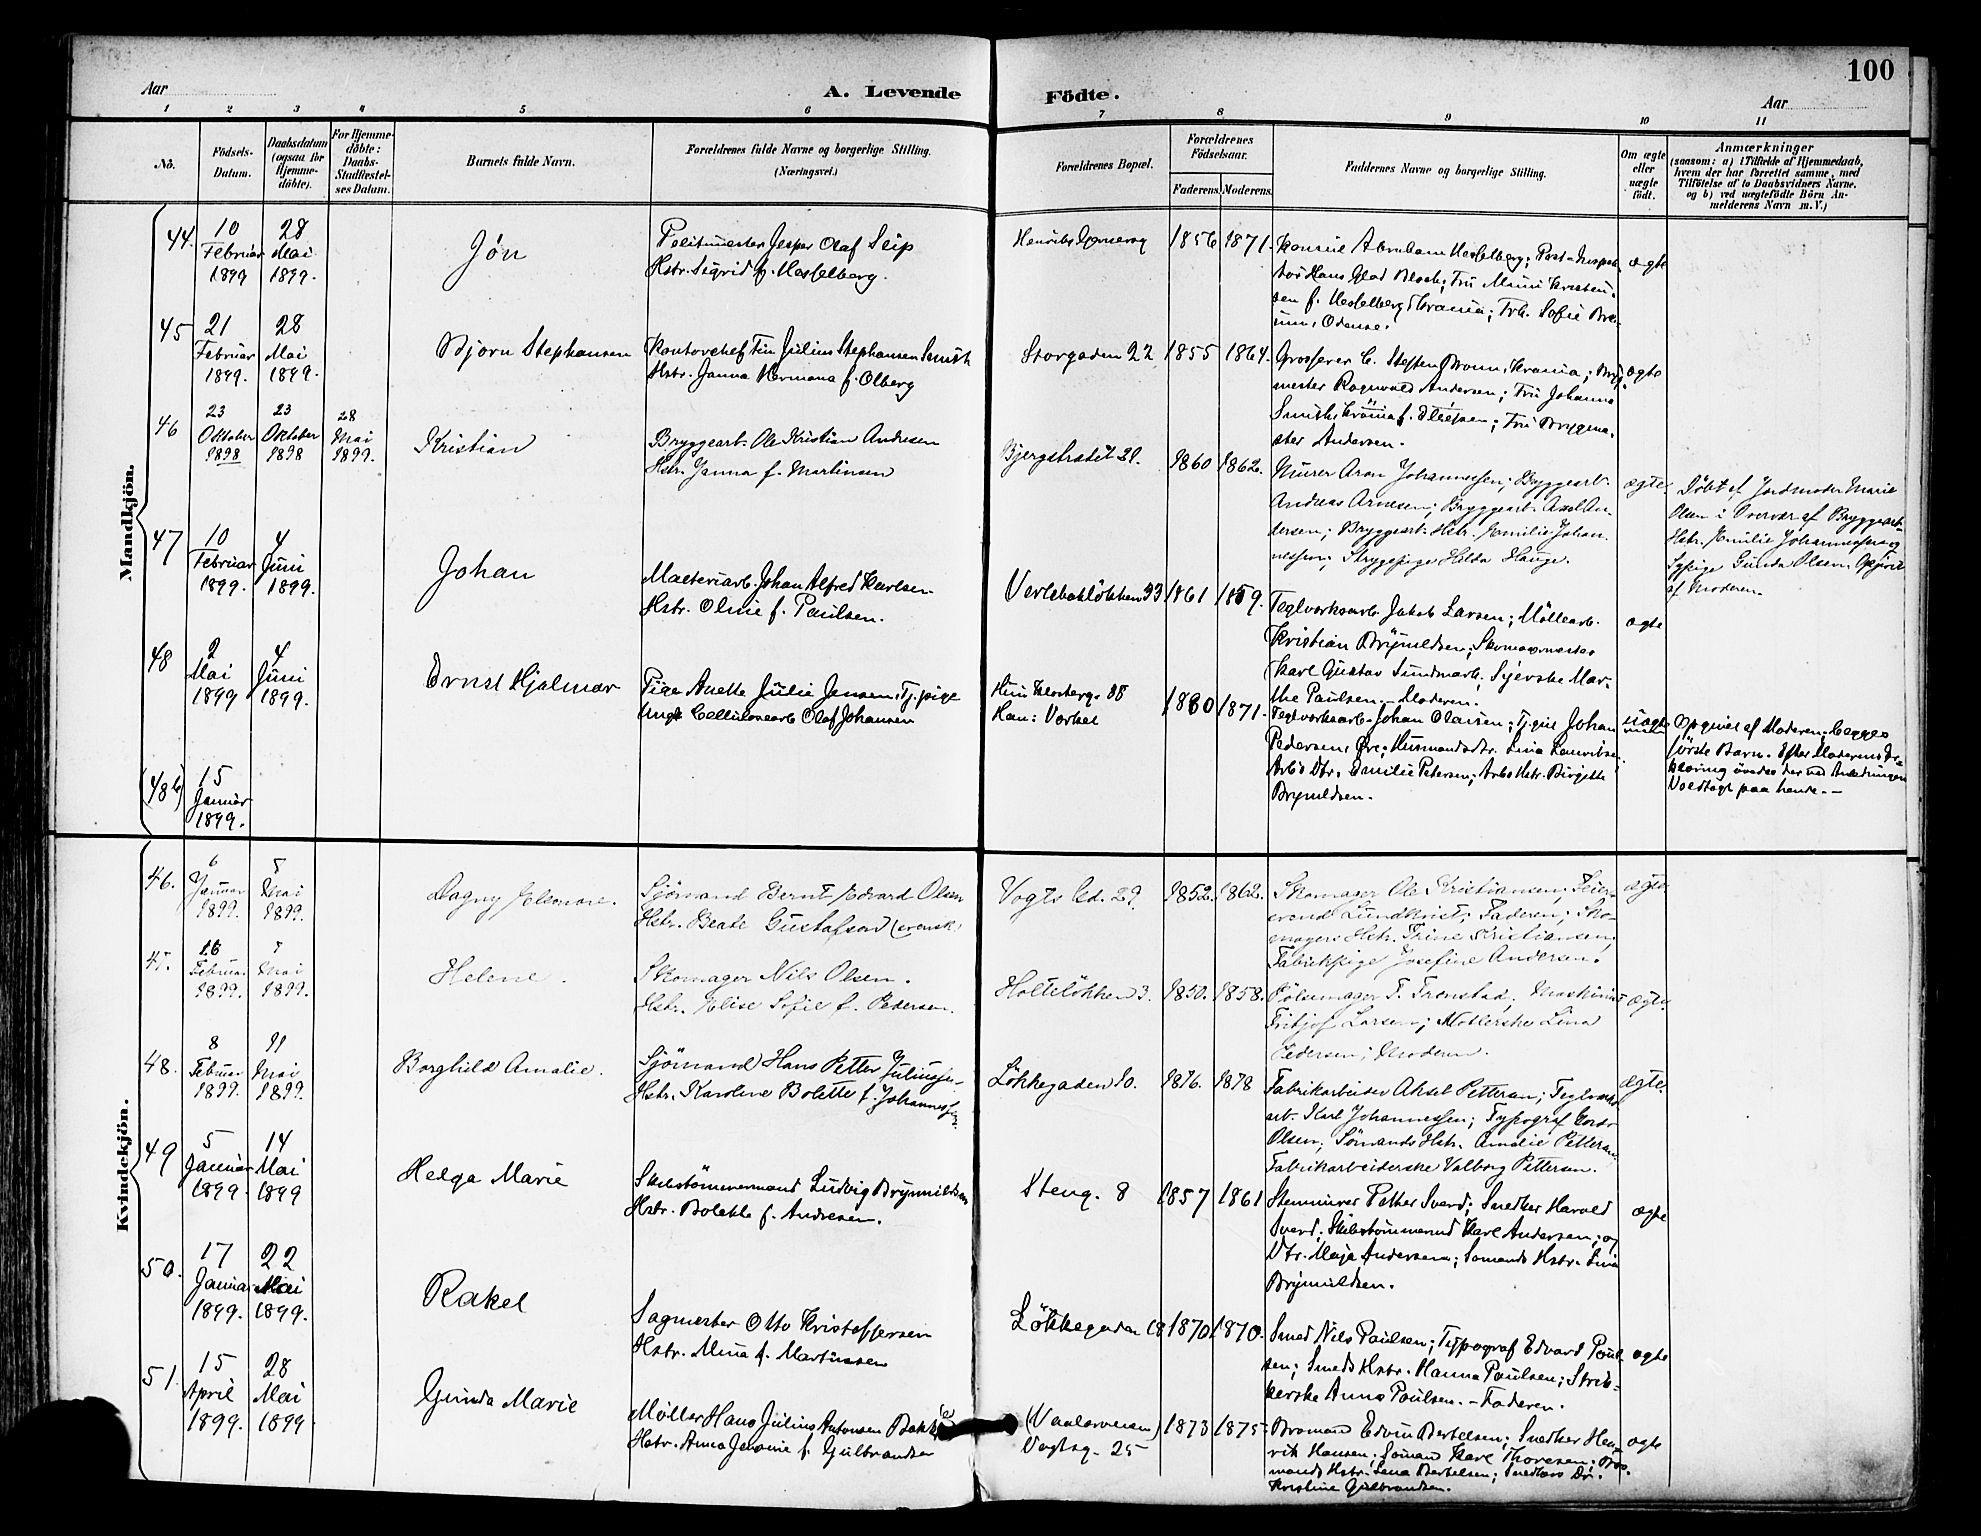 100
Aar
A. Levende
Födte.
Aar
1 2 3 4 5 6 7 8 9 10 11
No.
Födsels-
Datum.
Daabsdatum
(ogsaa for
Hjemme-
döbte).
For Hjemme-
döbte:
Daabs-
Stadfæstel-
ses Datum.
Barnets fulde Navn.
Forældrenes fulde Navne og borgerlige Stilling.
(Næringsvei.)
Forældrenes Bopæl.
Forældrenes
Födselsaar.
Faderens. Moderens.
Faddernes Navne og borgerlige Stilling.
Om ægte
eller
uægte
födt.
Anmærkninger
(saasom: a) i Tilfælde af Hjemmedaab,
hvem der har forrettet samme, med
Tilföielse af to Daabsvidners Navne.
og b) ved uægtefödte Börn An-
melderens Navn m. V.)
Mandkjön.
44.
10
Februar
1899
28
Mai
1899.
Jón
Politimester Jesper Olaf Seip
Hstr. Sigrid f. Hesselberg.
1856
1871.
Konsul Abraham Hesselberg; Post-Inspek-
tør Hans Glad Bloch; Fru Mimi Kristen-
sen f. Hesselberg Krania; Frk. Sofie
Odense.
ægte
45
21
Februar
1899.
28
Mai
1899.
Bjørn Stephansen
Kontorchef Finn Julius Stephansen Smith
Hstr. Janna Hermana f. Olberg
Storgaden 22
1855
1864.
Grosserer C. Steffen Brown, Krania; Bryg-
mester Ragnvald Andersen; Fru Johanna
Smith, Krania f. ; Fru Brygme-
ster Andersen.
ægte
46
23
Oktober
1898
23
Oktober
1898
28
Mai
1899.
Kristian
Bryggearb. Ole Kristian Andresen
Hstr. Janna f. Martinsen
Bjergstrædet 21.
1860
1862.
Murer Aron Johannessen; Bryggearb.
Andreas Arnesen; Bryggearb. Axel An-
dersen; Bryggearb. Hstr. Emilie Johan-
nessen; Strygepige Hilda Hauge.
ægte.
Döbt af Jordmoder Marie
Olsen i Overvær af Bryggearb.
Hstr. Emilie Johannessen og
Sypige Gunda Olsen. Opgivet
af Moderen.
47
10
Februar
1899.
4
Juni
1899.
Johan
Malteriarb. Johan Alfred Karlsen
Hstr. Oline f. Paulsen.
Verlebaklökken 33
1861
1859.
Teglværksarb. Jakob Larsen; Möllearb.
Kristian Brynildsen; Skomagermester
Karl Gustav Sundmark; Syerske Mar-
the Paulsen. - Moderen.
ægte
48
2
Mai
1899
4
Juni
1899.
Ernst Hjalmar
Pige Anette Julie Jensen, Tj.pige
Ungk. Cellulosearb. Olaf Johansen
Hun: Klosterg. 88
Han: Vorkel
1880
1871.
Teglværksarb. Johan Olausen; Tj.gut Johan
Pedersen, Øre; Husmandsdtr. Lina Lauritsen;
Arb's Dtr. Emilie Petersen; Arbs Hstr. Birgitte
Brynildsen.
uægte
Opgivet af Moderen; Begges
første Barn. Efter Moderens Er-
klæring övedes der ved Avledningen
Voldtægt paa hende. -
(486)
15
Januar
1899.
Kvindekjön.
46.
6
Januar
1899.
5
Mai
1899.
Dagny Eleonore.
Sjömand Bernt Edvard Olsen
Hstr. Beate Gustafson (svensk)
Vogts Gd. 29.
1852.
1862.
Skomager Ole Kristiansen;
Lundkvist; Faderen; Sko-
magers Hstr. Trine Kristiansen;
Fabrikpige Josefine Andersen.
ægte
47.
16
Februar
1899.
7
Mai
1899.
Helene.
Skomager Nils Olsen.
Hstr. Elise Sofie f. Pedersen.
Holtelökken 3.
1850.
1858.
Pölsemager T. Fremstad; Maskinist
Fritjof Larsen; Möllerske Lina
Pedersen; Moderen.
ægte.
48.
8
Februar
1899.
11
Mai
1899.
Borghild Amalie.
Sjömand Hans Petter Juliussen
Hstr. Karoline Bolette f. Johannessen.
Lökkegaden 10.
1876.
1878
Fabrikarbeider Aksel Pettersen; Teglværks
arb. Karl Johannessen; Typograf
Olsen; Sömands Hstr. Amalie Pettersen;
Fabrikarbeiderske Valborg Pettersen.
ægte.
49
5
Januar
1899.
14
Mai
1899
Helga Marie
Skibstömmermand Ludvig Brynildsen
Hstr. Bolette f. Andresen.
Steng. 8
1857
1861
Stenmurer Petter Sverd; Snedker Harald
Sverd; Skibstömmermand Karl Andersen; og
Dtr. Maja Andersen; Sömands Hstr. Lina
Brynildsen.
ægte
50.
17
Januar
1899.
22
Mai
1899.
Rakel
Sagmester Otto Kristoffersen
Hstr. Mina f. Martinsen
Lökkegaden 18
1870.
1870.
Smed Nils Paulsen; Typograf Edvard Poul-
sen; Smeds Hstr. Hanna Paulsen; Strik-
kerske Anna Paulsen. - Faderen.
ægte
51.
15
April
1899.
28
Mai
1899
Gunda Marie
Möller Hans Julius Antonsen Bakke
Hstr. Anna Jensine f. Gulbrandsen
(Vaalerveien)
Vogtsg. 25
1873
1875.
Bromand Edvin Bertelsen; Snedker Hen-
rik Hansen; Sömand Karl Thoresen; Bro-
mands Hstr. Lena Bertelsen; Snedkers Dr.
Kristine Gulbrandsen.
ægte